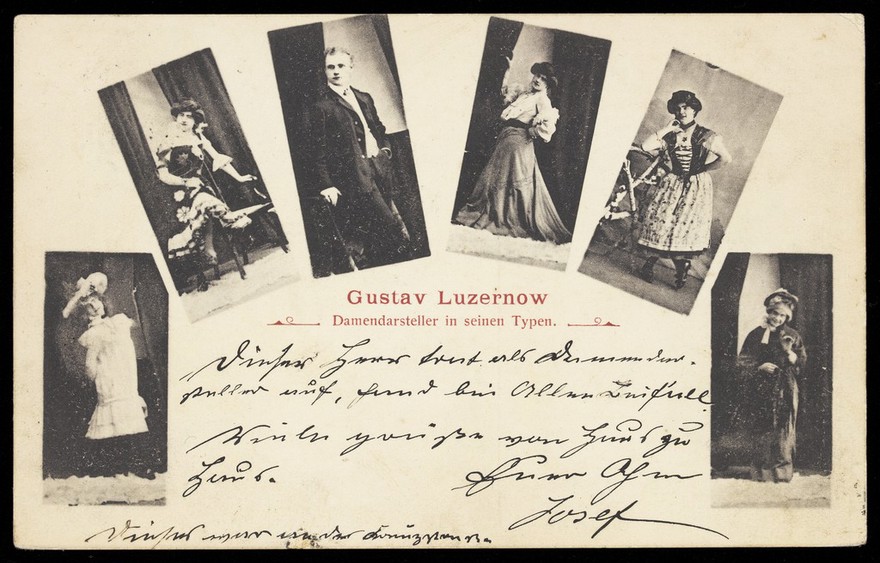 Gustav Luzernow
Damendarsteller in seinen Typen.
Dieser Herr trat als Damendar-
steller auf, fand bei Allen Beifall
Viele grüße von Haus zu
Haus. Euer Ohm
Josef
Dieses war in der